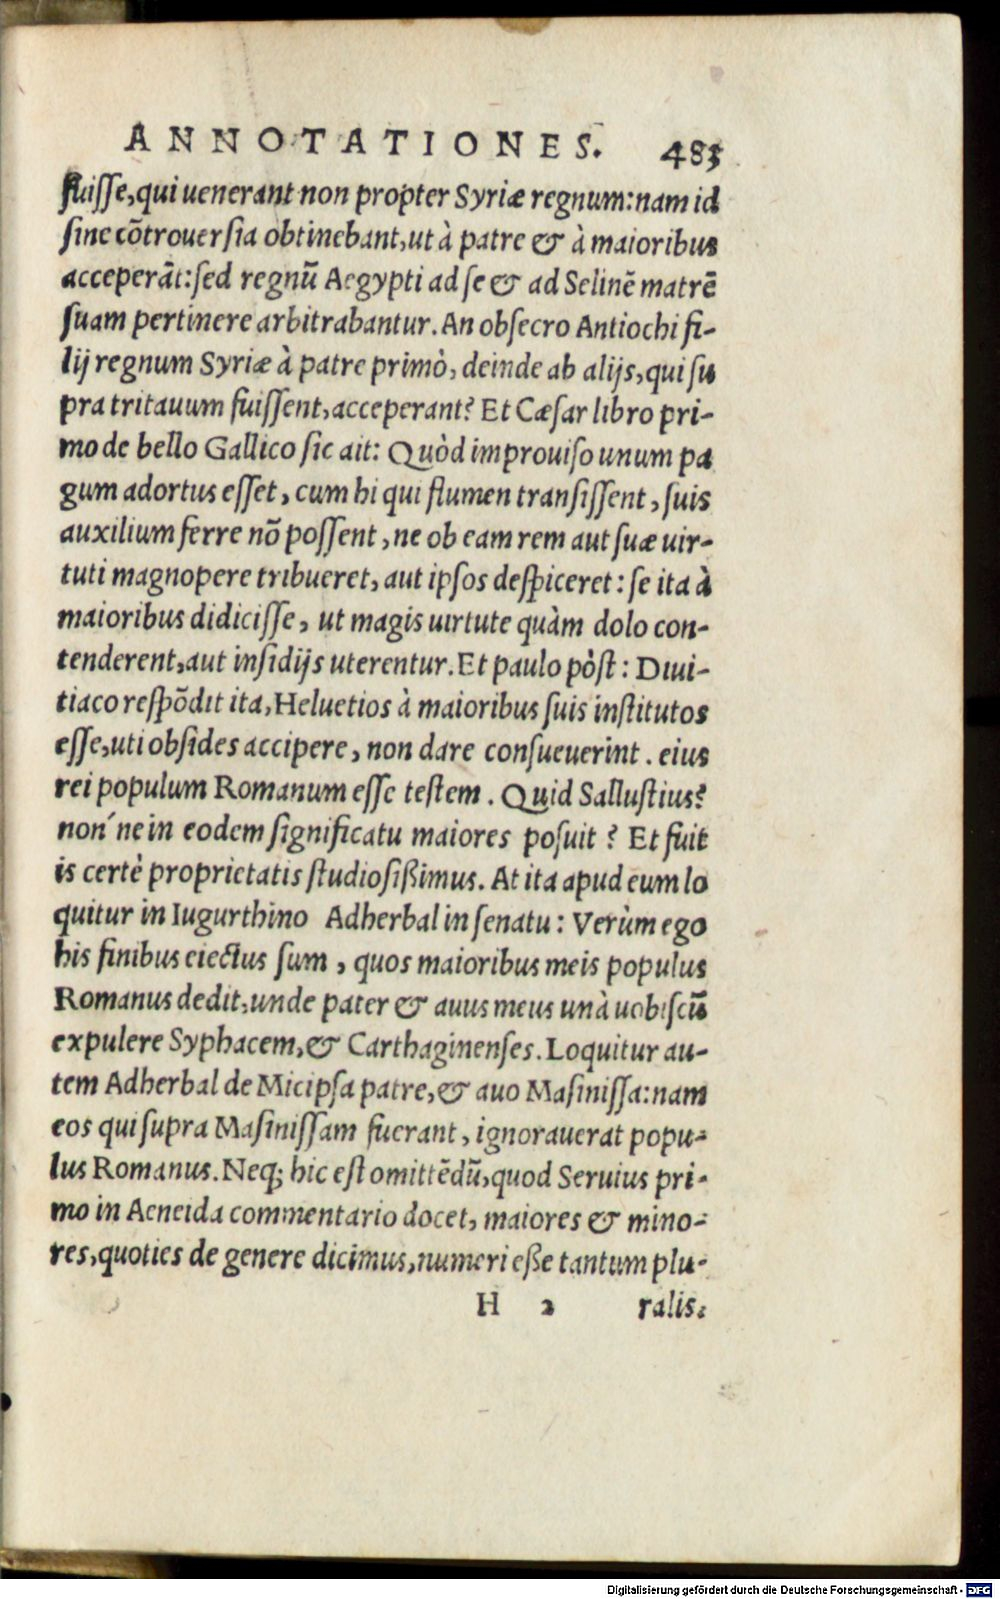 ANNOTATIONES. 483
fuisse, qui uenerant non propter Syriæ regnum: nam id
sine cõtrouersia obtinebant, ut à patre & à maioribus
acceperãt: sed regnũ Aegypti ad se & ad Selinẽ matrẽ
suam pertinere arbitrabantur. An obsecro Antiochi fi-
lij regnum Syriæ à patre primò, deinde ab alijs, qui su
pra tritauum fuissent, acceperant? Et Cæsar libro pri-
mo de bello Gallico sic ait: Quòd improuiso unum pa
gum adortus esset, cum hi qui flumen transissent, suis
auxilium ferre nõ possent, ne ob eam rem aut suæ uir-
tuti magnopere tribueret, aut ipsos despiceret: se ita à
maioribus didicisse, ut magis uirtute quàm dolo con-
tenderent, aut insidijs uterentur. Et paulo pòst: Diui-
tiaco respõdit ita, Heluetios à maioribus suis institutos
esse, uti obsides accipere, non dare consueuerint. eius
rei populum Romanum esse testem. Quid Sallustius?
non´ne in eodem significatu maiores posuit? Et fuit
is certè proprietatis studiosißimus. At ita apud eum lo
quitur in Iugurthino Adherbal in senatu: Verùm ego
his finibus eiectus sum, quos maioribus meis populus
Romanus dedit, unde pater & auus meus unà uobiscũ
expulere Syphacem, & Carthaginenses. Loquitur au-
tem Adherbal de Micipsa patre, & auo Masinissa: nam
eos qui supra Masinissam fuerant, ignorauerat popu-
lus Romanus. Neq; hic est omittẽdũ, quod Seruius pri-
mo in Aeneida commentario docet, maiores & mino-
res, quoties de genere dicimus, numeri eße tantum plu-
H 2 ralis.
Digitalisierung gefördert durch die Deutsche Forschungsgemeinschaft - DFG